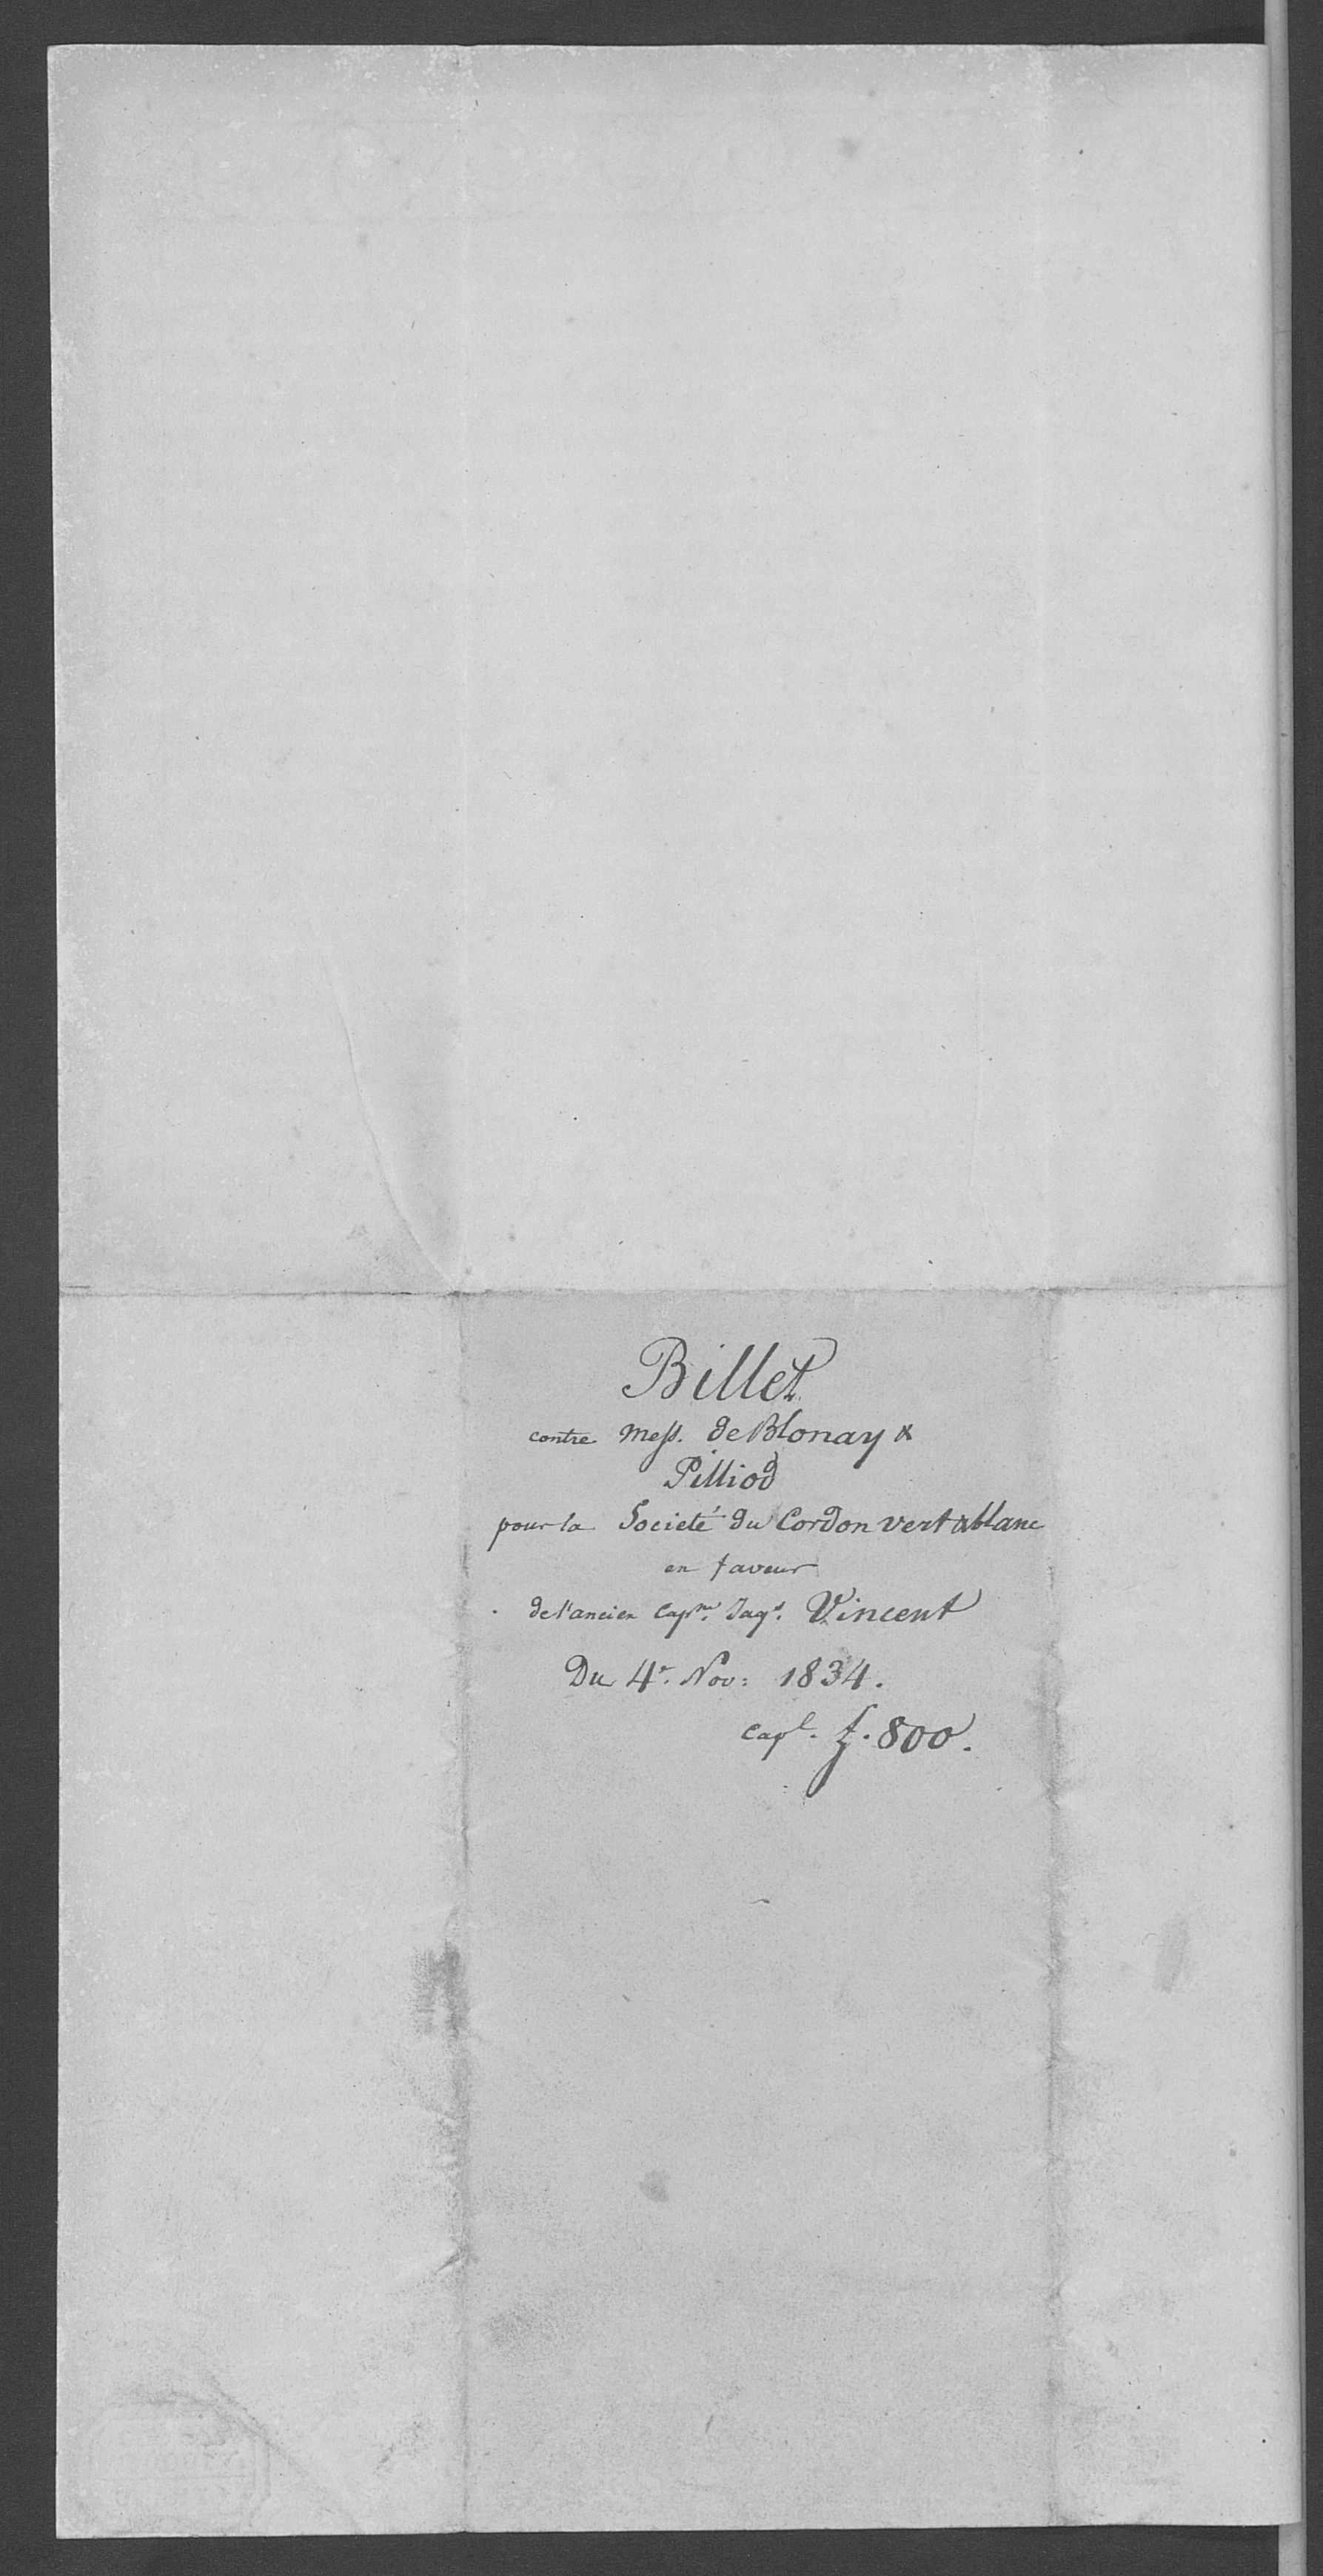 Billet
contre Mess. de Blonay &
Pilliod
pour la Societé du Cordon vert & blanc
en faveur
de l'ancien Capne. Jaqs. Vincent
Du 4e. Nov: 1834.
Capl. f. 800.